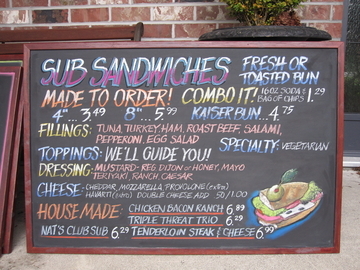 SUB SANDWICHES FRESH OR TOASTED BUN
MADE TO ORDER! COMBO IT! 16OZ SODA & BAG OF CHIPS 1.29
4"...3.49 8"...5.99 KAISER BUN...4.75
FILLINGS: TUNA, TURKEY, HAM, ROAST BEEF, SALAMI,
PEPPERONI, EGG SALAD
SPECIALTY: VEGETARIAN
TOPPINGS: WE'LL GUIDE YOU!
DRESSING: MUSTARD-REG. DIJON OR HONEY, MAYO
TERIYAKI, RANCH, CAESAR
CHEESE: CHEDDAR, MOZZARELLA, PROVOLONE (extra)
HAVARTI DOUBLE CHEESE ADD .50/1.00
HOUSE MADE: CHICKEN BACON RANCH 6.89
TRIPLE THREAT TRIO 6.29
NAT'S CLUB SUB 6.29 TENDERLOIN STEAK & CHEESE 6.99